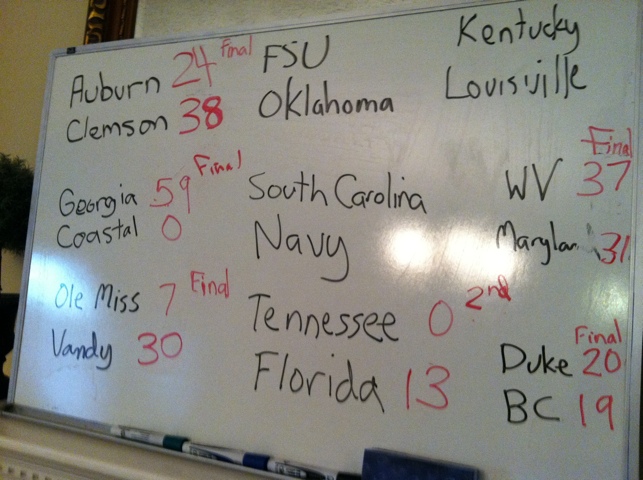 Auburn 24 Final
Clemson 38
Georgia 59 Final
Coastal 0
Ole Miss 7 Final
Vandy 30
FSU
Oklahoma
South Carolina
Navy
Tennessee 0 2nd
Florida 13
Kentucky
Louisville
Final
WV 37
Marylan 31
Final
Duke 20
BC 19